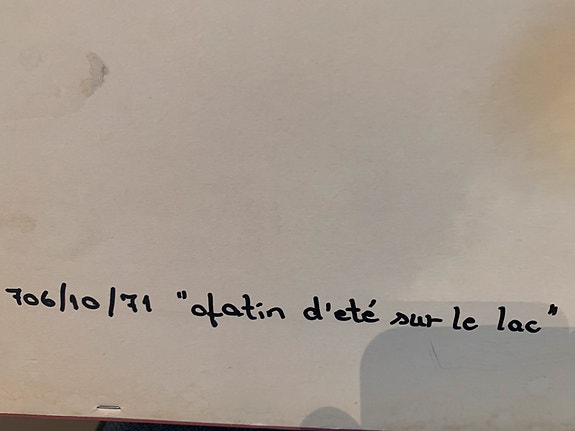 706/10/71 "Matin d'eté sur le lac"